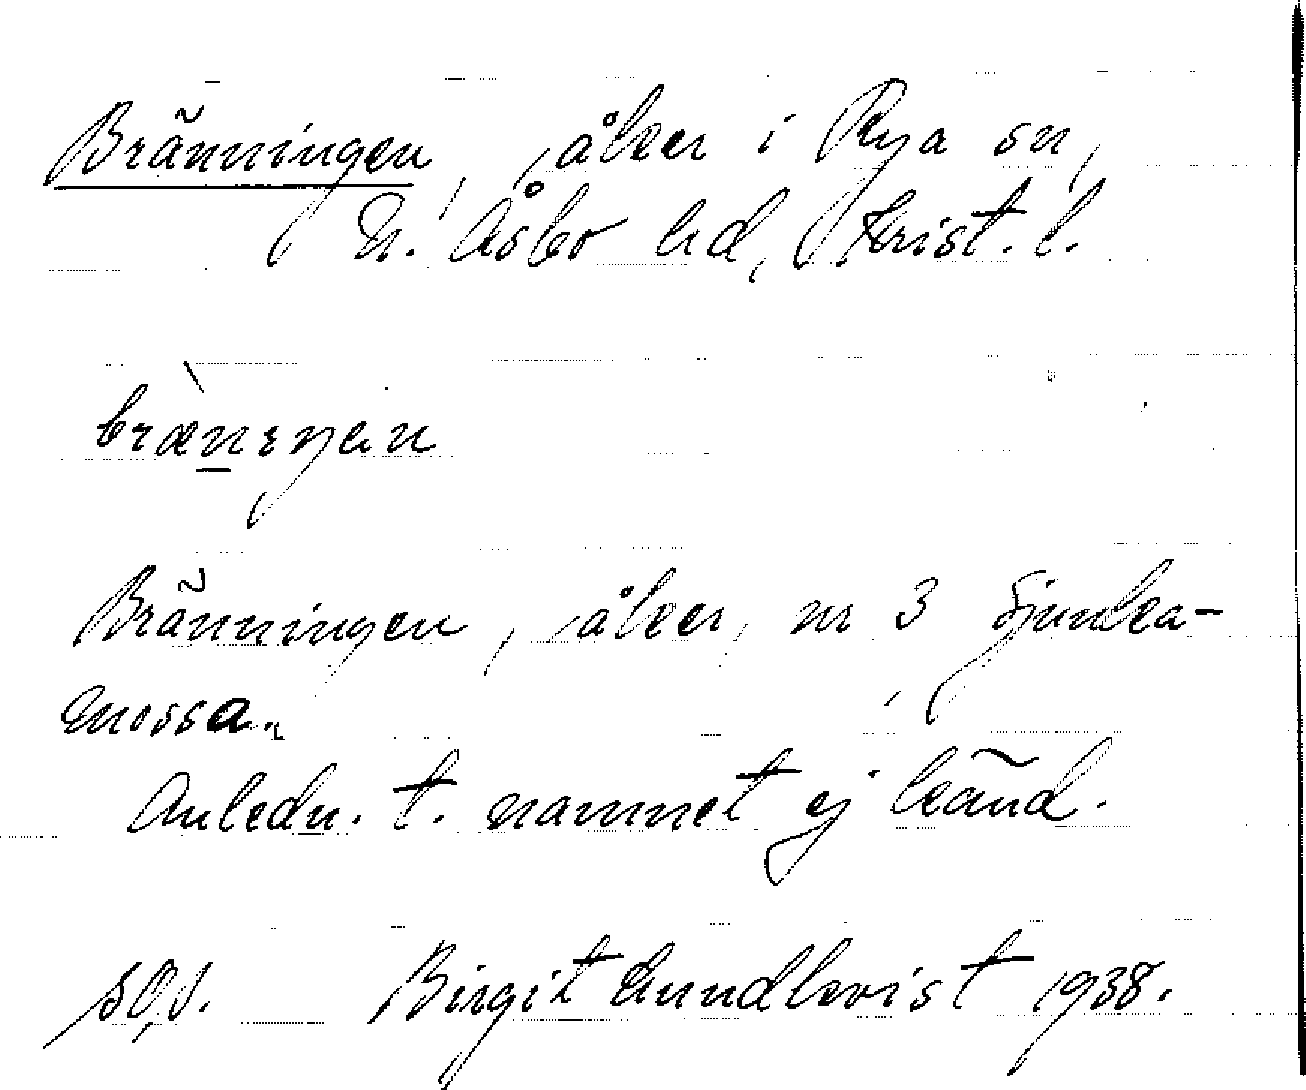 Bränningen, åker i Rya sn,
N. Åsbo hd, Krist. l.
brænıŋen
Bränningen, åker, nr 3 Sjunka-
mossa.
Anledn. t. namnet ej känd.
Birgit Lundkvist 1938.